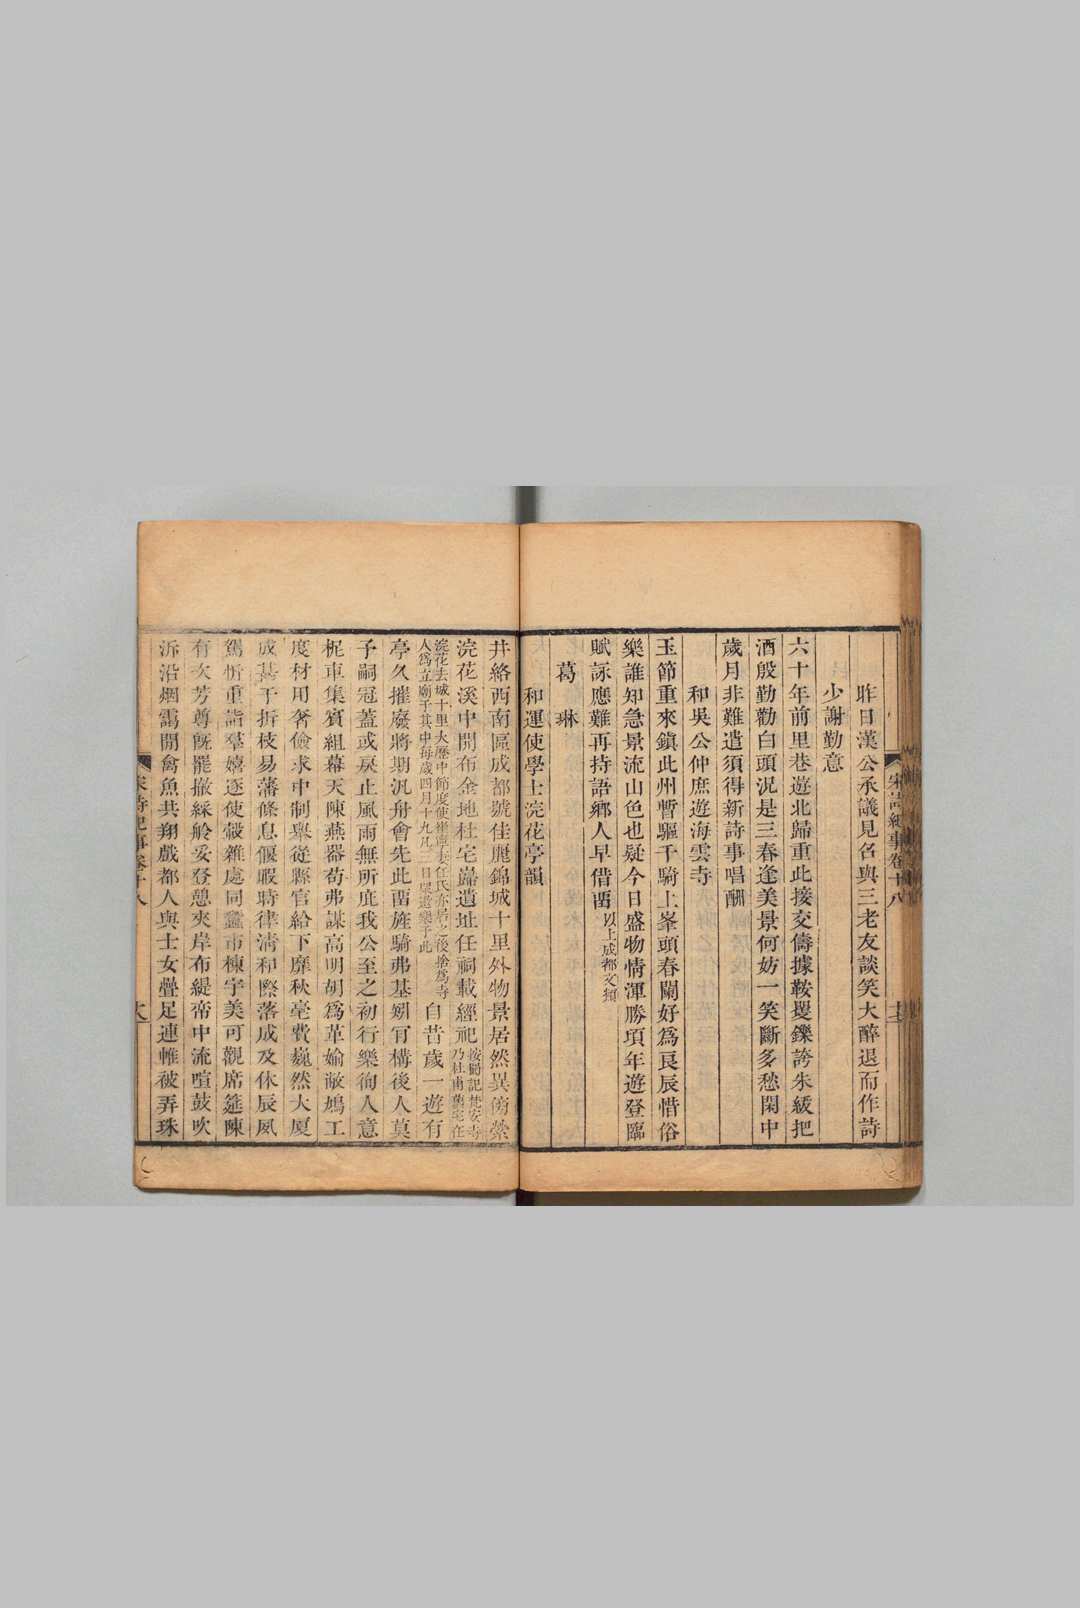 昨日漢公承議見召與三老友談笑大醉退而作詩
少謝勤意
六十年前里巷遊北歸重此接交儔據鞍矍鑠誇朱紱把
酒殷勤勸白頭況是三春逢美景何妨一笑斷多愁閑中
歲月非難遣須得新詩事唱酬
和吳公仲庶遊海雲寺
玉節重來鎮此州暫驅千騎上峯頭春闌好爲良辰惜俗
樂誰知急景流山色也疑今日盛物情渾勝項年遊登臨
賦詠應難再持語鄉人早借畱以上成都文類
葛琳
和運使學士浣花亭韻
宋詩紀事卷十八
井絡西南區成都號佳麗錦城十里外物景居然異傍縈
浣花溪中開布金地杜宅巋遺址任祠載經祀按蜀記梵安寺乃杜甫舊宅在
浣花去城十里大歷中節度使崔寧妻任氏亦居之後捨爲寺人爲立廟于其中每歲四月十九凡三日衆遨樂于此自昔歲一遊有
亭久摧廢將期汎舟會先此畱旌騎弗基矧肎構後人莫
子嗣冠蓋或戾止風雨無所庇我公至之初行樂徇人意
柅車集賓組幕天陳燕器苟弗謀高明胡爲革媮敝鳩工
度材用奢儉求中制舉從縣官給下靡秋毫費巍然大厦
成甚于折枝易藩條息偃暇時律清和際落成及休辰夙
駕忻重詣羣嬉逐使轂雜處同蠶市棟宇美可觀席筵陳
有次芳尊旣罷撤綵舲妥登憩夾岸布緹帟中流喧鼓吹
泝沿烟靄開禽魚共翔戲都人與士女疊足連帷被弄珠
宋詩紀事卷十八